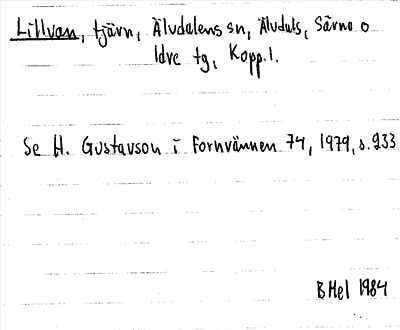 Lillvan, tjärn, Älvdalens sn, Älvdals, Särna o
Idre tg, Kopp.l.
Se H. Gustavson i Fornvännen 74, 1979, s.233
BHel 1984